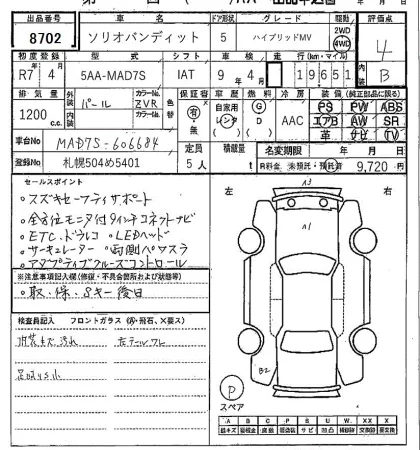 出品番号 車名 ドア形状 グレード 駆動 評価点
8702 ソリオバンディット 5 ハイブリッドMV 2WD 4WD 4
初度登録 型式 シフト 車検 走行(km・マイル) 内装
R7 4月 5AA-MAD7S IAT 9年4月 19651 B
排気量 外装色 カラーNo. 色替 保証書 車歴 燃料 冷房 装備(純正部品に限る)
1200c.c. パール ZVR 有・無 自家用 レンタ G D AAC PS PW ABS
エアB AW SR
革 ナビ TV
車台No MAD7S-606684 定員 積載量 名変期限 年 月 日
登録No 札幌504め5401 5人 t R料金 未預託・預託 9,720円
セールスポイント
・スズキセーフティサポート
・全方位モニタ付9インチコネクトナビ
・ETC・ドラレコ ・LEDヘッド
・サーキュレーター ・両側パワスラ
・アダプティブクルーズコントロール
※注意事項記入欄(修復・不具合箇所および状態等)
・取・保・Sキー後日
検査員記入 フロントガラス(・飛石、×要ス)
内装キズ汚れ 左テールワレ
足回りS小
左 右
A3
A1
B2
P
スペア
A B C P S U W X XX